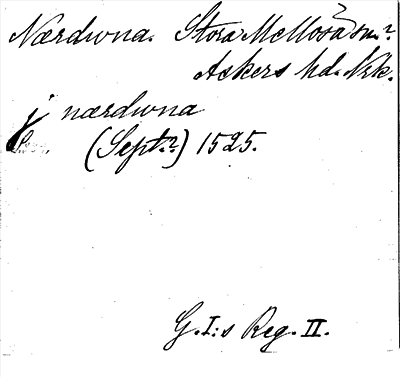 Nærdwna. Stora Mellösa sn.?
Askers hd. Nrk.
j nærdwna
(Sept.?) 1525.
G.I:s Reg. II.